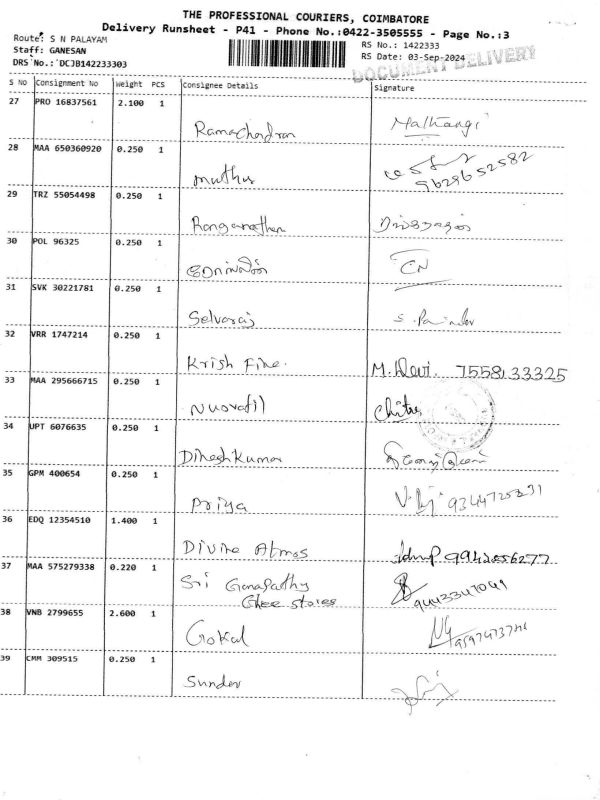 THE PROFESSIONAL COURIERS, COIMBATORE
Delivery Runsheet - P41 - Phone No.:0422-3505555 - Page No.:3
Route: S N PALAYAM
RS No.: 1422333
Staff: GANESAN
RS Date: 03-Sep-2024
DRS No.: DCJB142233303
DOCUMENT DELIVERY
S No Consignment No Weight PCS Consignee Details Signature
27 PRO 16837561 2.100 1
Ramachandran Mathangi
28 MAA 650360920 0.250 1
muthu 9629652582
29 TRZ 55054498 0.250 1
Ranganathan
30 POL 96325 0.250 1
CN
31 SVK 30221781 0.250 1
Selvaraj
32 VRR 1747214 0.250 1
Krish Fine. M. Devi. 7558133325
33 MAA 295666715 0.250 1
Chitra
34 UPT 6076635 0.250 1
Dinesh Kumar
35 GPM 400654 0.250 1
Priya
36 EDQ 12354510 1.400 1
Divine Atmos 9942056277
37 MAA 575279338 0.220 1
Sri Ganapathy
Ghee stores
38 VNB 2799655 2.600 1
Gokal
39 CMM 309515 0.250 1
Sunder